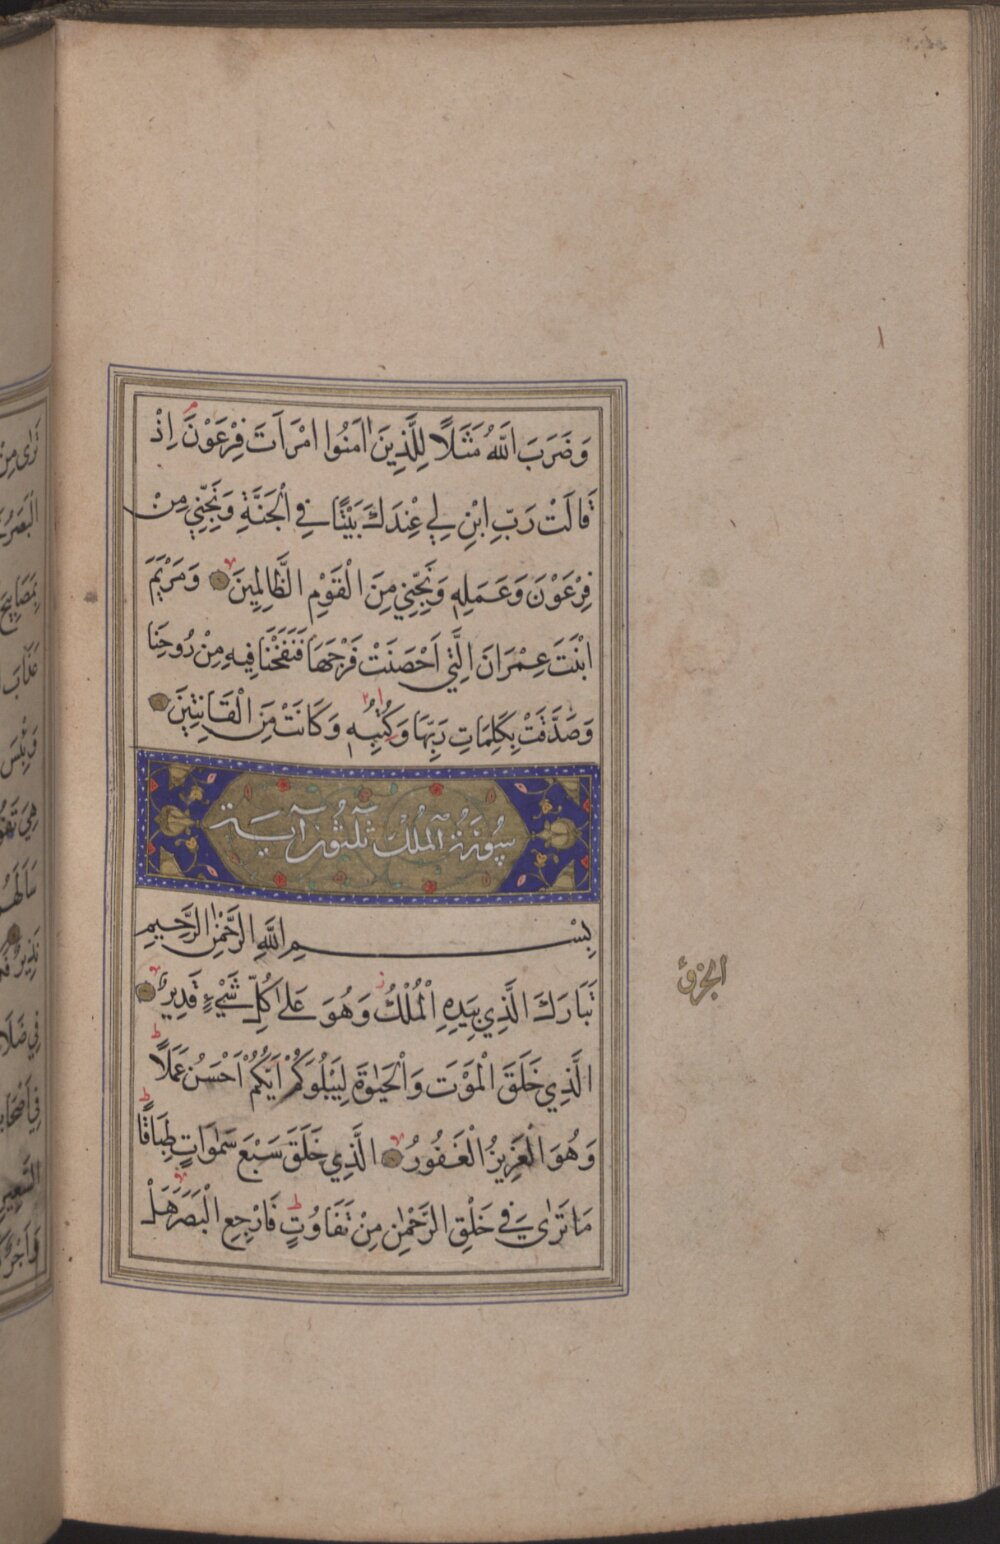 وَضَرَبَ اللّٰهُ مَثَلًا لِلَّذِينَ اٰمَنُوا امْرَاَتَ فِرْعَوْنَ اِذْ
قَالَتْ رَبِّ ابْنِ لِي عِنْدَكَ بَيْتًا فِي الْجَنَّةِ وَنَجِّنِي مِنْ
فِرْعَوْنَ وَعَمَلِهِ وَنَجِّنِي مِنَ الْقَوْمِ الظَّالِمِينَ وَمَرْيَمَ
ابْنَتَ عِمْرَانَ الَّتِي اَحْصَنَتْ فَرْجَهَا فَنَفَخْنَا فِيهِ مِنْ رُوحِنَا
وَصَدَّقَتْ بِكَلِمَاتِ رَبِّهَا وَكُتُبِهِ وَكَانَتْ مِنَ الْقَانِتِينَ
سُورَةُ الْمُلْكِ ثَلٰثُونَ آيَة
بِسْمِ اللّٰهِ الرَّحْمٰنِ الرَّحِيمِ
تَبَارَكَ الَّذِي بِيَدِهِ الْمُلْكُ وَهُوَ عَلٰى كُلِّ شَيْءٍ قَدِيرٌ
الَّذِي خَلَقَ الْمَوْتَ وَالْحَيٰوةَ لِيَبْلُوَكُمْ اَيُّكُمْ اَحْسَنُ عَمَلًا
وَهُوَ الْعَزِيزُ الْغَفُورُ الَّذِي خَلَقَ سَبْعَ سَمٰوَاتٍ طِبَاقًا
مَا تَرٰى فِي خَلْقِ الرَّحْمٰنِ مِنْ تَفَاوُتٍ فَارْجِعِ الْبَصَرَ هَلْ
الجزؤ